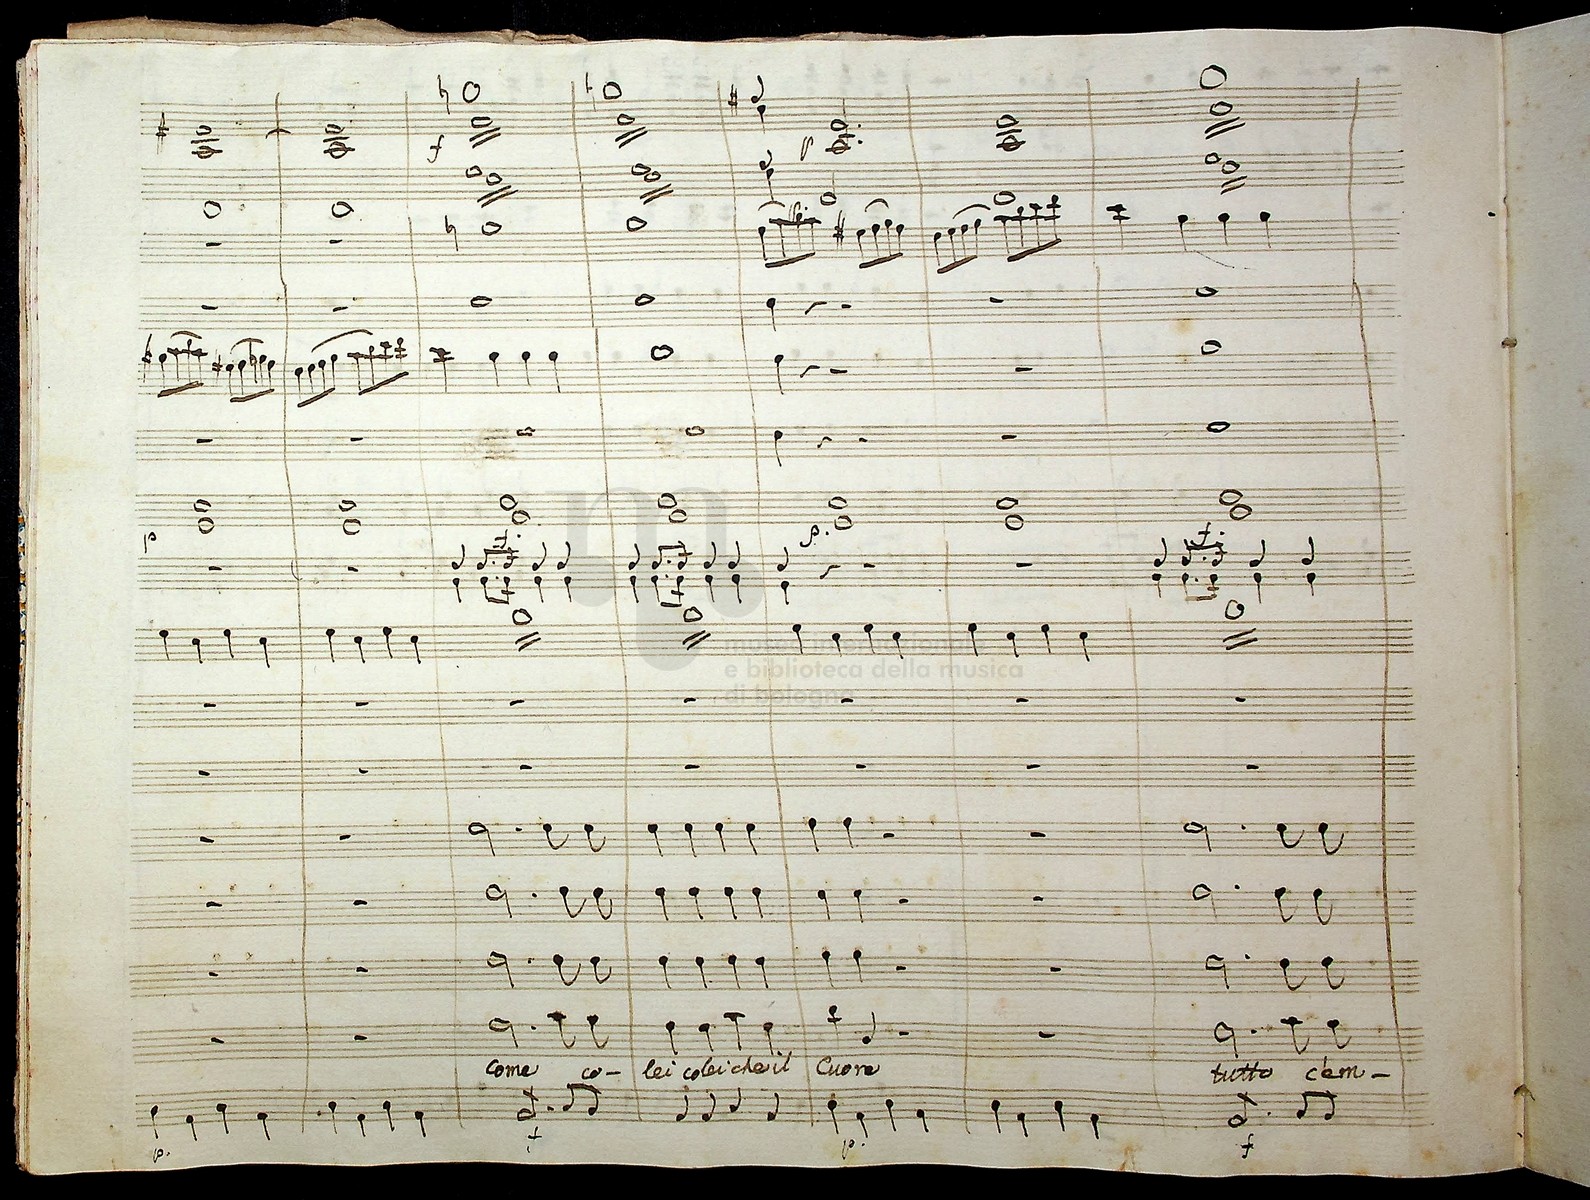 f
p
p
p.
f.
f.
museo internazionale
e biblioteca della musica
di bologna
come co- lei colei che il Cuore tutto c'em-
p.
f
p.
f